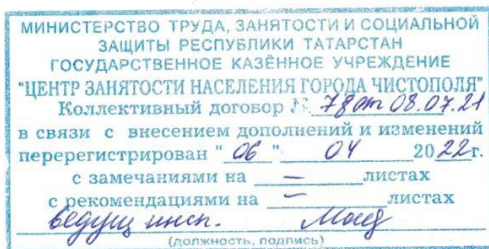 МИНИСТЕРСТВО ТРУДА, ЗАНЯТОСТИ И СОЦИАЛЬНОЙ
ЗАЩИТЫ РЕСПУБЛИКИ ТАТАРСТАН
ГОСУДАРСТВЕННОЕ КАЗЁННОЕ УЧРЕЖДЕНИЕ
"ЦЕНТР ЗАНЯТОСТИ НАСЕЛЕНИЯ ГОРОДА ЧИСТОПОЛЯ"
Коллективный договор № 78 от 08.07.21
в связи с внесением дополнений и изменений
перерегистрирован "06" 04 2022г.
с замечаниями на — листах
с рекомендациями на — листах
ведущ инсп.
(должность, подпись)